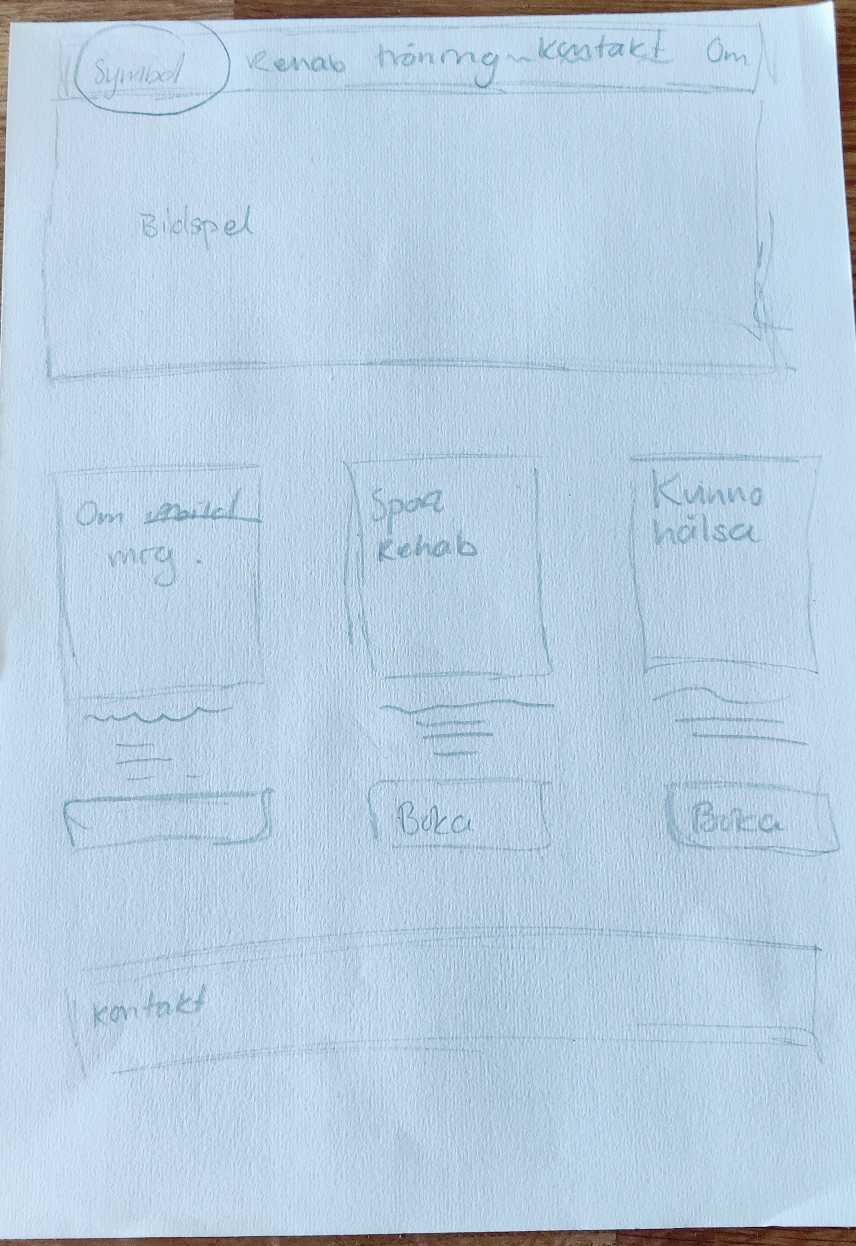 Symbol Rehab träning kontakt Om
Bildspel
Om
mig.
Rehab
Kvinno
hälsa
Boka
Boka
kontakt